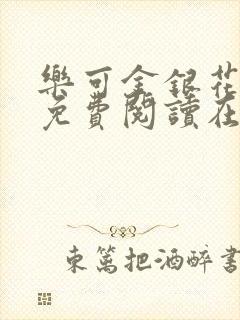 樂可金銀花
免費閱讀在
東篱把酒醉書